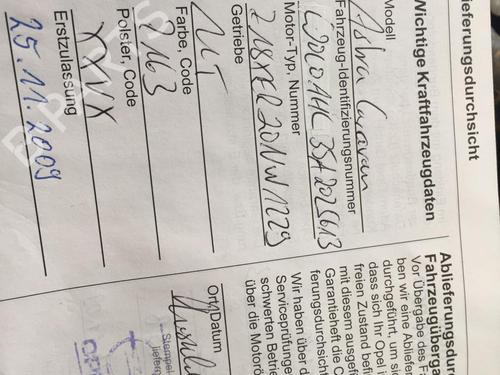 lieferungsdurchsicht
Wichtige Kraftfahrzeugdaten
Modell
Astra Caravan
Fahrzeug-Identifizierungsnummer
Motor-Typ, Nummer
Getriebe
Farbe, Code
Z163
Polster, Code
Erstzulassung
25.11.2009
Ablieferungsdurc
Fahrzeugüberga
Vor Übergabe des F
ben wir eine Abliefe
durchgeführt, um si
dass sich Ihr Opel i
freien Zustand befi
mit diesem ausgefü
Garantieheft die C
ferungsdurchsicht
Wir haben über d
Serviceprüfunge
schwerten Betrie
über die Motorö
Ort/Datum
Stempel
liefere
B PARTS